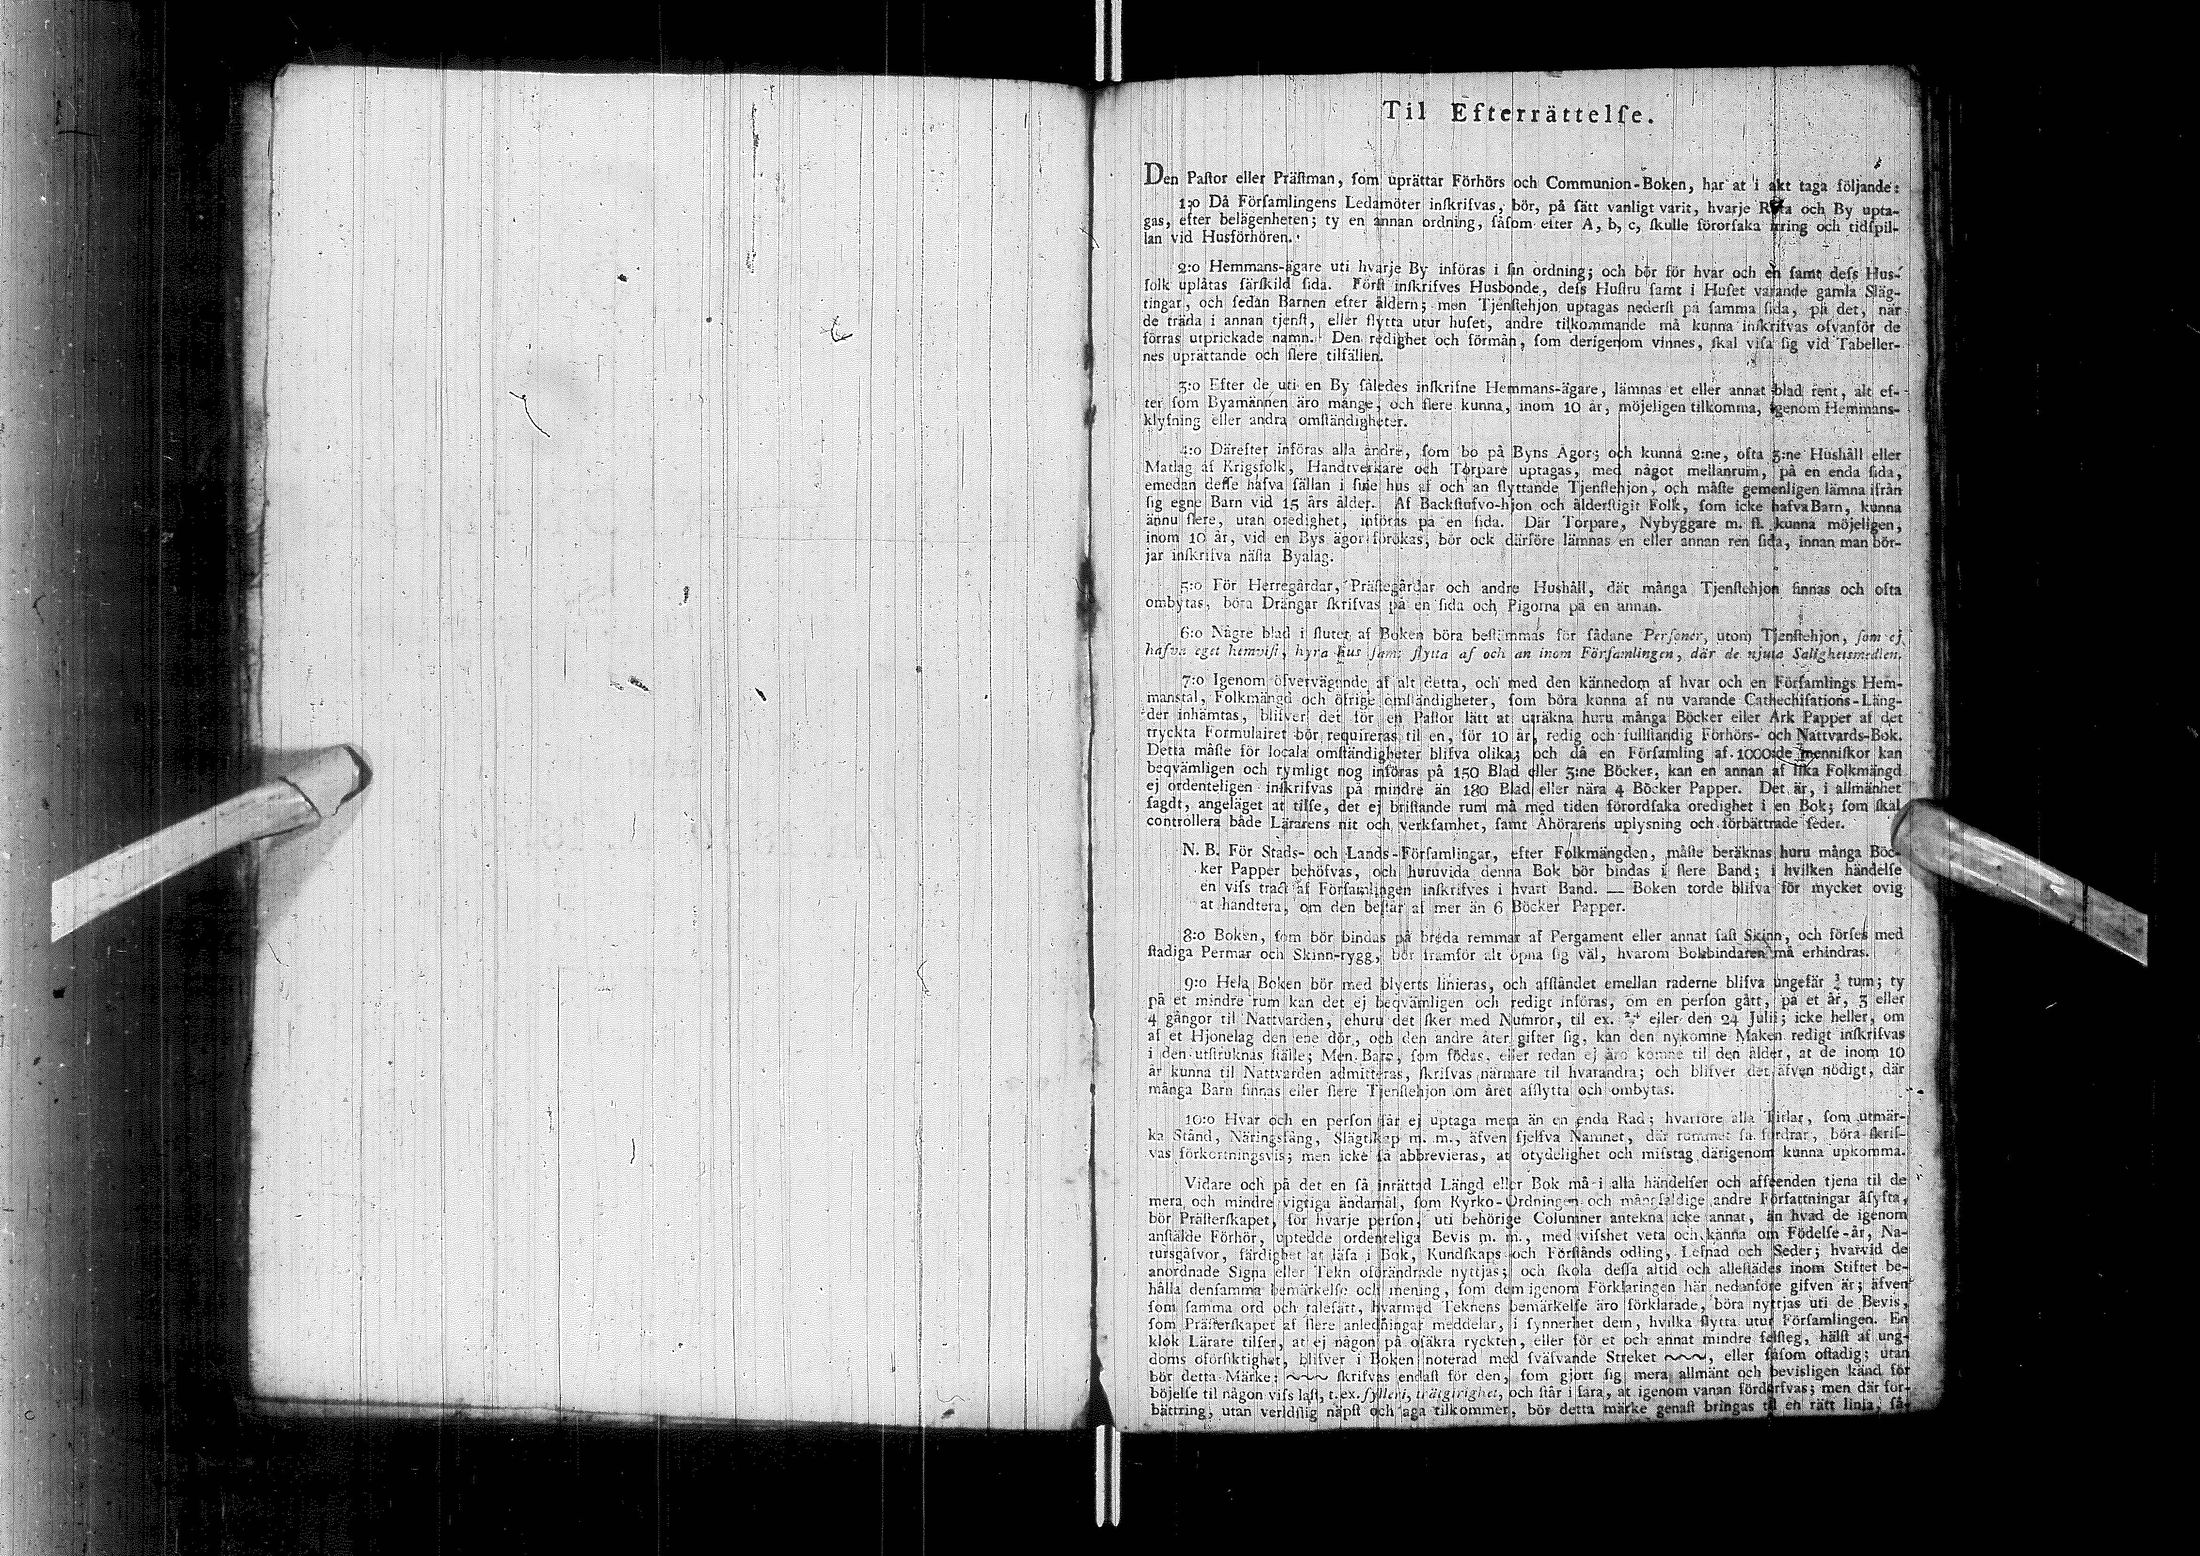 Til Efterrättelſe.
Den Paſtor eller Präſtman, ſom uprättar Förhörs och Communion-Boken, har at i akt taga följande:
1:o Då Förſamlingens Ledamöter inſkrifvas, bör, på ſätt vanligt varit, hvarje Rota och By upta-
gas, efter belägenheten; ty en annan ordning, ſåſom efter A, b, c, ſkulle förorſaka irring och tidſpil-
lan vid Husförhören.
2:o Hemmans-ägare uti hvarje By införas i ſin ordning; och bör för hvar och en ſamt deſs Hus-
folk uplåtas färſkild ſida. Förſt inſkrifves Husbonde, deſs Huſtru ſamt i Huſet varande gamla Släg-
tingar, och ſedan Barnen efter åldern; men Tjenſtehjon uptagas nederſt på ſamma ſida, på det, när
de träda i annan tjenſt, eller flytta utur huſet, andre tilkommande må kunna inſkrifvas ofvanför de
förras utprickade namn. Den redighet och förmån, ſom derigenom vinnes, ſkal viſa ſig vid Tabeller-
nes uprättande och flere tilfällen.
3:o Efter de uti en By således inſkrifne Hemmans-ägare, lämnas et eller annat blad rent, alt ef-
ter ſom Byamännen äro månge, och flere kunna, inom 10 år, möjeligen tilkomma, igenom Hemmans-
klyfning eller andra omſtändigheter.
4:o Därefter införas alla andre, ſom bo på Byns Ägor; och kunna 2:ne, ofta 3:ne Hushåll eller
Matlag af Krigsfolk, Handtverkare och Torpare uptagas, med något mellanrum, på en enda ſida,
emedan deſſe hafva ſällan i ſine hus af och an flyttande Tjenſtehjon, och måſte gemenligen lämna ifrån
ſig egne Barn vid 15 års ålder. Af Backſtufvo-hjon och ålderſtigit Folk, ſom icke hafva Barn, kunna
ännu flere, utan oredighet, införas på en ſida. Där Torpare, Nybyggare m. fl. kunna möjeligen,
inom 10 år, vid en Bys ägor förökas, bör ock därföre lämnas en eller annan ren ſida, innan man bör-
jar inſkrifva näſta Byalag.
5:o För Herregårdar, Präſtegårdar och andre Hushåll, där många Tjenſtehjon finnas och ofta
ombytas, böra Drängar ſkrifvas på en ſida och Pigorna på en annan.
6:o Någre blad i ſlutet af Boken böra beſtämmas för ſådane Perſoner, utom Tjenſtehjon, ſom ej
hafva eget hemviſt, hyra hus ſamt flytta af och an inom Förſamlingen, där de njuta Salighetsmedlen.
7:o Igenom öfvervägende af alt detta, och med den kännedom af hvar och en Förſamlings Hem-
manstal, Folkmängd och öfrige omſtändigheter, ſom böra kunna af nu varande Cathechiſations-Läng-
der inhämtas, blifver det för en Paſtor lätt at uträkna huru många Böcker eller Ark Papper af det
tryckta Formulairet bör requireras til en, för 10 år, redig och fullſtändig Förhörs- och Nattvards-Bok.
Detta måſte för locala omſtändigheter blifva olika; och då en Förſamling af 1000:de menniſkor kan
beqvämligen och rymligt nog införas på 150 Blad eller 3:ne Böcker, kan en annan af lika Folkmängd
ej ordenteligen inſkrifvas på mindre än 180 Blad eller nära 4 Böcker Papper. Det är, i allmänhet
ſagdt, angeläget at tilſe, det ej briſtande rum må med tiden förordſaka oredighet i en Bok; ſom ſkal
controllera både Lärarens nit och verkſamhet, ſamt Åhörarens uplysning och förbättrade ſeder.
N. B. För Stads- och Lands-Förſamlingar, efter Folkmängden, måſte beräknas huru många Böc-
ker Papper behöfvas, och huruvida denna Bok bör bindas i flere Band; i hvilken händelſe
en viſs tract af Förſamlingen inſkrifves i hvart Band. — Boken torde blifva för mycket ovig
at handtera, om den beſtår af mer än 6 Böcker Papper.
8:o Boken, ſom bör bindas på breda remmar af Pergament eller annat faſt Skinn, och förſes med
ſtadiga Permar och Skinn-rygg, bör framför alt öpna ſig väl, hvarom Bokbindaren må erhindras.
9:o Hela Boken bör med blyerts linieras, och afſtåndet emellan raderne blifva ungefär ¾ tum; ty
på et mindre rum kan det ej beqvämligen och redigt införas, om en perſon gått, på et år, 3 eller
4 gångor til Nattvarden, ehuru det ſker med Numror, til ex. 24/7 eller den 24 Julii; icke heller, om
af et Hjonelag den ene dör, och den andre åter gifter ſig, kan den nykomne Maken redigt inſkrifvas
i den utſtruknas ſtälle; Men Barn, ſom födas, eller redan ej äro komne til den ålder, at de inom 10
år kunna til Nattvarden admitteras, ſkrifvas närmare til hvarandra; och blifver det äfven nödigt, där
många Barn finnas eller flere Tjenſtehjon om året afflytta och ombytas.
10:o Hvar och en perſon får ej uptaga mera än en enda Rad; hvarföre alla Titlar, ſom utmär-
ka Stånd, Näringsfång, Slägtſkap m. m., äfven ſjelfva Namnet, där rummet ſå fordrar, böra ſkrif-
vas förkortningsvis; men icke ſå abbrevieras, at otydelighet och miſstag därigenom kunna upkomma.
Vidare och på det en ſå inrättad Längd eller Bok må i alla händelſer och affeenden tjena til de
mera och mindre vigtiga ändamål, ſom Kyrko-Ordningen och mångfaldige andre Författningar åſyfta,
bör Präſterſkapet, för hvarje perſon, uti behörige Columner antekna icke annat, än hvad de igenom
anſtälde Förhör, uptedde ordenteliga Bevis m. m., med viſshet veta och känna om Födelſe-år, Na-
tursgåfvor, färdighet at läſa i Bok, Kundſkaps och Förſtånds odling, Lefnad och Seder; hvarvid de
anordnade Signa eller Tekn oförändrade nyttjas; och ſkola deſſa altid och alleſtädes inom Stiftet be-
hålla denſamma bemärkelſe och mening, ſom dem igenom Förklaringen här nedanföre gifven är; äfven
ſom ſamma ord och talefätt, hvarmed Teknens bemärkelſe äro förklarade, böra nyttjas uti de Bevis,
ſom Präſterſkapet af flere anledningar meddelar, i ſynnerhet dem, hvilka flytta utur Förſamlingen. En
klok Lärare tilſer, at ej någon på oſäkra ryckten, eller för et och annat mindre felſteg, hälſt af ung-
doms oförſiktighet, blifver i Boken noterad med ſväfvande Streket ~~~, eller ſåſom oſtadig; utan
bör detta Märke: ~~~ ſkrifvas endaſt för den, ſom gjort ſig mera allmänt och bevisligen känd för
böjelſe til någon viſs laſt, t. ex. fylleri, trätgirighet, och ſtår i fara, at igenom vanan förderfvas; men där för-
bättring, utan verldſlig näpſt och aga tilkommer, bör detta märke genaſt bringas til en rätt linia, ſå-